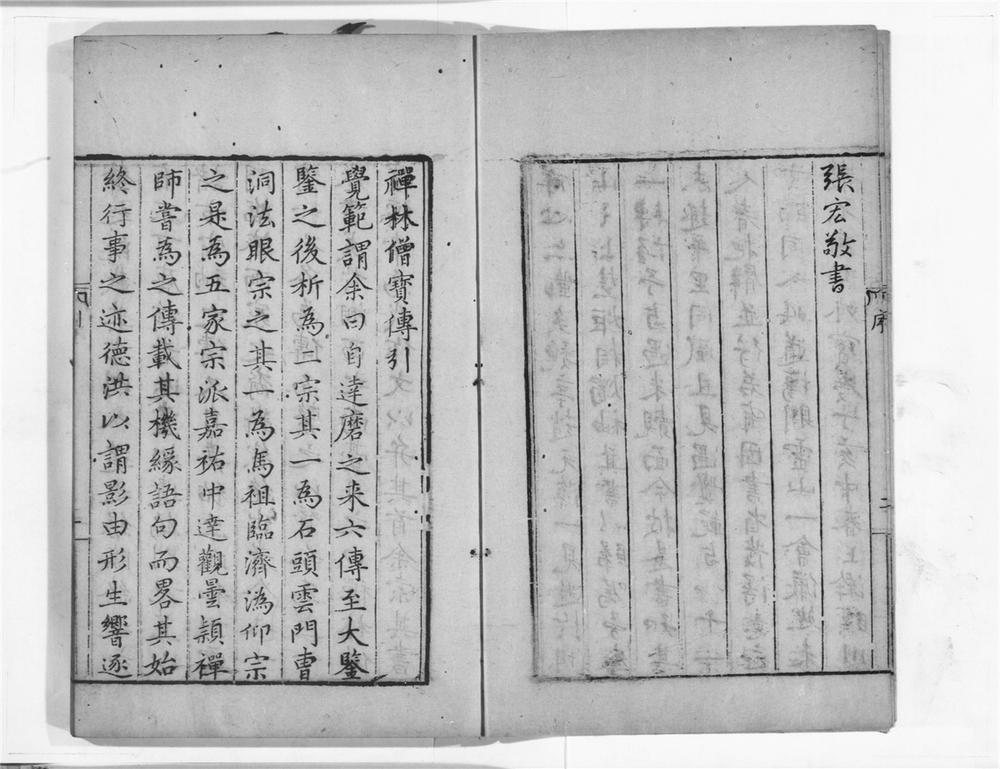 張宏敬書
序
二
禪林僧寶傳引
覺範謂余曰自達磨之来六傳至大鑒
鑒之後析為二宗其一為石頭雲門曹
洞法眼宗之其一為馬祖臨濟溈仰宗
之是為五家宗派嘉祐中達觀曇頴禪
師嘗為之傳載其機緣語句而畧其始
終行事之迹德洪以謂影由形生響逐